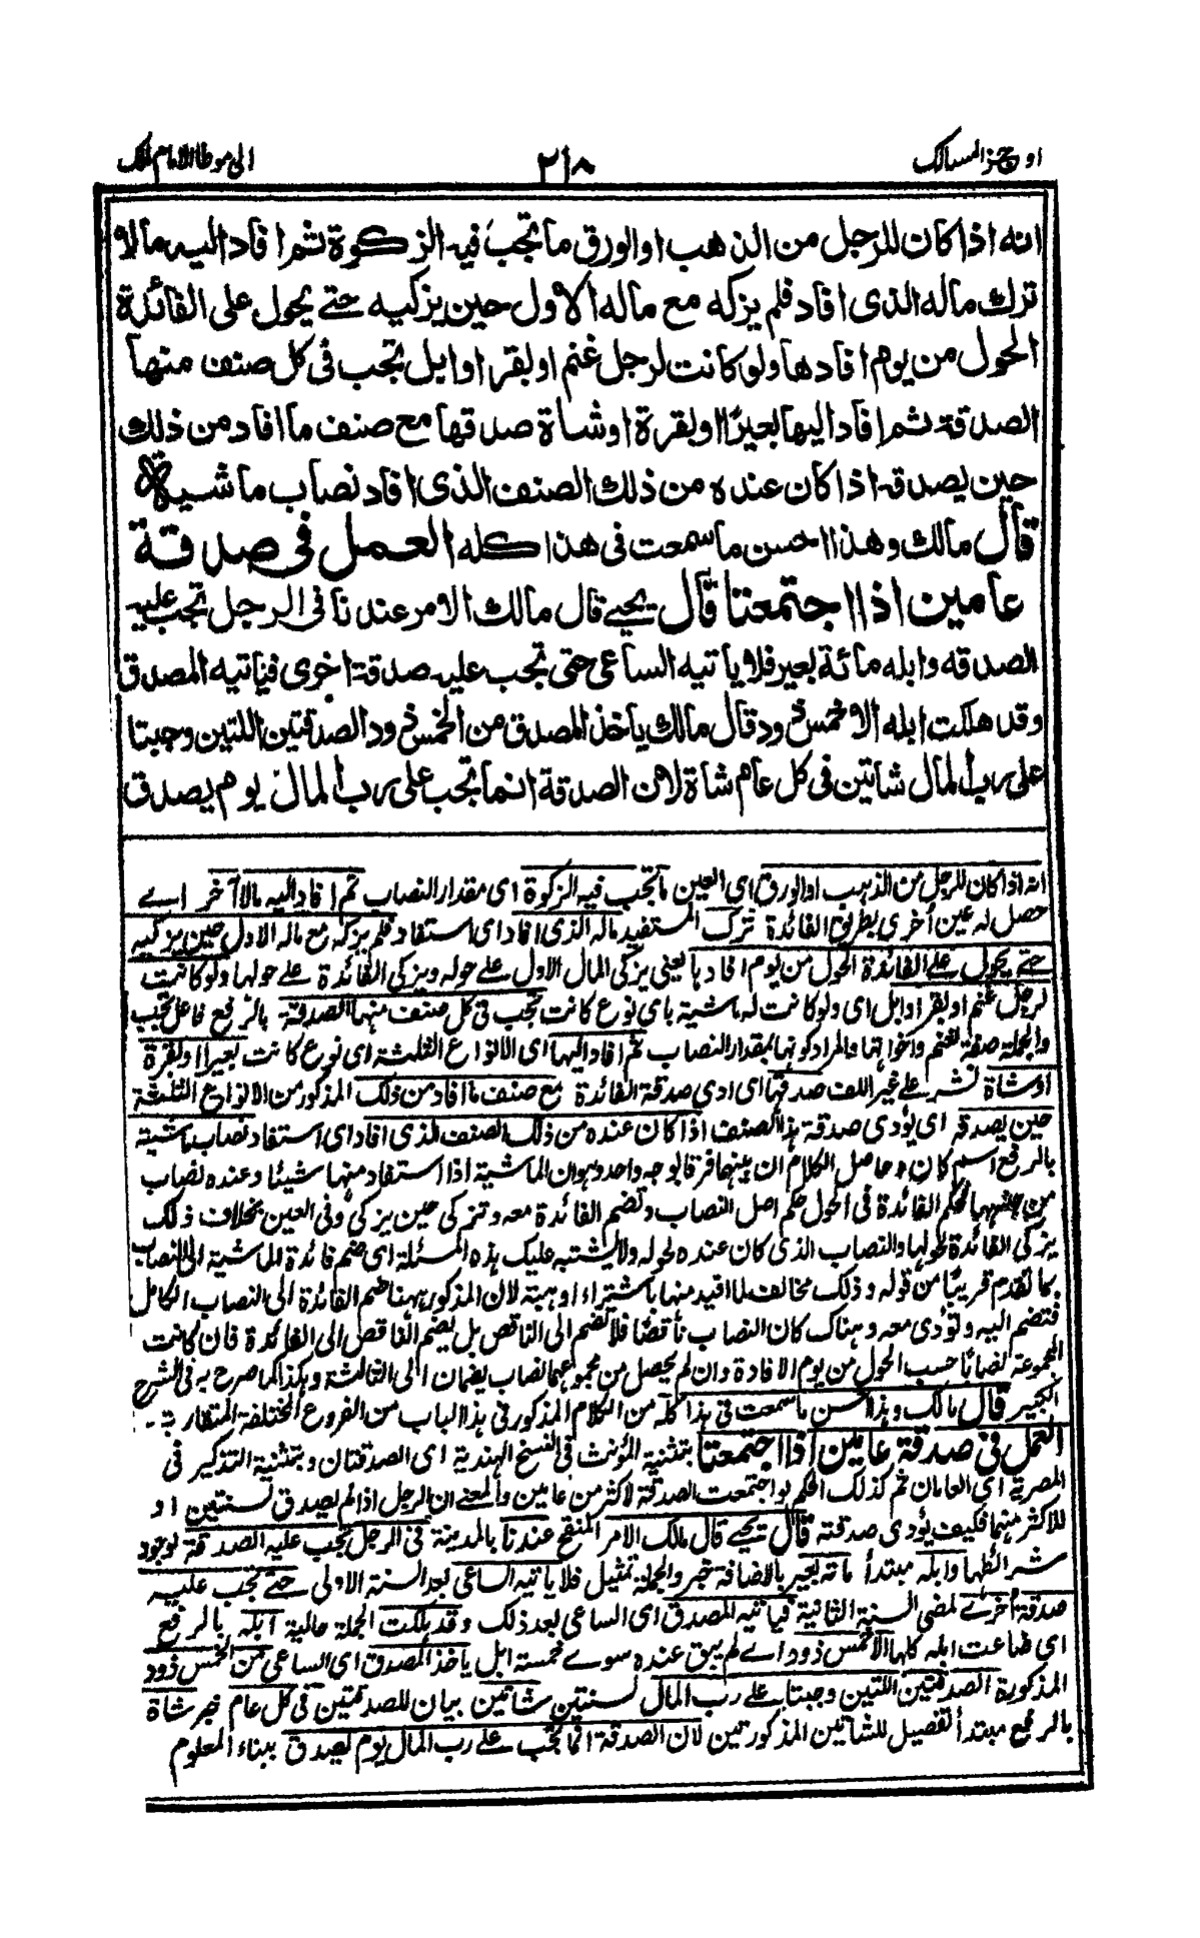 اوجز المسالك
٢١٨
الى موطا الامام مالك
انه اذا كان للرجل من الذهب او الورق ما تجب فيه الزكوة ثم افاد اليه مالا
ترك ماله الذى افاد فلم يزكه مع ماله الاول حين يزكيه حتے يحول على الفائدة
الحول من يوم افادها ولو كانت لرجل غنم او بقر او ابل تجب فى كل صنف منها
الصدقة ثم افاد اليها بعيرًا او بقرة او شاة صدقها مع صنف ما افاد من ذلك
حين يصدقه اذا كان عنده من ذلك الصنف الذى افاد نصاب ماشية
قال مالك وهذا احسن ما سمعت فى هذا كله العمل فى صدقة
عامين اذا اجتمعتا قال يحيے قال مالك الامر عندنا فى الرجل تجب عليه
الصدقه وابله مائة بعير فلا ياتيه الساعى حتى تجب عليه صدقة اخرى فياتيه المصدق
وقد هلكت ابله الا خمس ذود قال مالك ياخذ المصدق من الخمس ذود الصدقتين اللتين وجبتا
على رب المال شاتين فى كل عام شاة لان الصدقة انما تجب على رب المال يوم يصدق
انه اذا كان للرجل من الذهب او الورق اى العين ما تجب فيه الزكوة اى مقدار النصاب ثم افاد اليه مالا آخر اے
حصل له عين أخرى بطريق الفائدة ترك المستفيد ماله الذى افاد اى استفاد فلم يزكه مع ماله الاول حين يزكيه
حتے يحول علے الفائدة الحول من يوم افادها يعنى يزكى المال الاول علے حوله ويزكى الفائدة علے حولها ولو كانت
لرجل غنم او بقر او ابل اى ولو كانت له ماشية باى نوع كانت تجب فى كل صنف منها الصدقة بالرفع فاعل تجب
والجملة صفة لغنم واخواتها والمراد كونها بمقدار النصاب ثم افاد اليها اى الانواع الثلثة اى نوع كانت بعيرا او بقرة
او شاة نشر علے غير اللف صدقها اى ادى صدقة الفائدة مع صنف ما افاد من ذلك المذكور من الانواع الثلثة
حين يصدقه اى يؤدى صدقة هذا الصنف اذا كان عنده من ذلك الصنف الذى افاد اى استفاد نصاب ماشية
بالرفع اسم كان وحاصل الكلام ان بينها فرقا بوجه واحد وهو ان الماشية اذا استفاد منها شيئا وعنده نصاب
من جنسها فحكم الفائدة فى الحول حكم اصل النصاب وتضم الفائدة معه وتزكى حين يزكى وفى العين بخلاف ذلك
يزكى الفائدة لحولها والنصاب الذى كان عنده لحوله ولا يشتبه عليك هذه المسئلة اى ضم فائدة الماشية الى النصاب
بما تقدم قريبًا من قوله وذلك مخالف لما افيد منها باشتراء او هبة لان المذكور ههنا ضم الفائدة الى النصاب الكامل
فتضم اليه وتؤدى معه وهناك كان النصاب ناقصًا فلا تضم الى الناقص بل يضم الناقص الى الفائدة فان كانت
المجموعة نصابًا حسب الحول من يوم الافادة وان لم يحصل من مجموعهما نصاب يضمان الى الثالثة وهكذا كما صرح به فى الشرح
الكبير قال مالك وهذا احسن ما سمعت فى هذا كله من الكلام المذكور فى هذا الباب من الفروع المختلفة المتقاربة -
العمل فى صدقة عامين اذا اجتمعتا بتثنية المؤنث فى النسخ الهندية اى الصدقتان وبتثنية التذكير فى
المصرية اى العامان ثم كذلك الحكم لو اجتمعت الصدقة لاكثر من عامين والمعنے ان الرجل اذا لم يصدق لسنتين او
للاكثر منهما فكيف يؤدى صدقته قال يحيے قال مالك الامر المنقح عندنا بالمدينة فى الرجل تجب عليه الصدقة لوجود
شرائطها وابله مبتدأ مائة بعير بالاضافة خبر والجملة تمثيل فلا ياتيه الساعى بعد السنة الاولى حتے تجب عليه
صدقة أخرے لمضى السنة الثانية فياتيه المصدق اى الساعى بعد ذلك وقد هلكت الجملة حالية ابله بالرفع
اى ضاعت ابله كلها الا خمس ذود اے لم يبق عنده سوے خمسة ابل ياخذ المصدق اى الساعى من الخمس ذود
المذكورة الصدقتين اللتين وجبتا علے رب المال لسنتين شاتين بيان للصدقتين فى كل عام خبر شاة
بالرفع مبتدأ تفصيل للشاتين المذكورتين لان الصدقة انما تجب علے رب المال يوم يصدق ببناء المعلوم